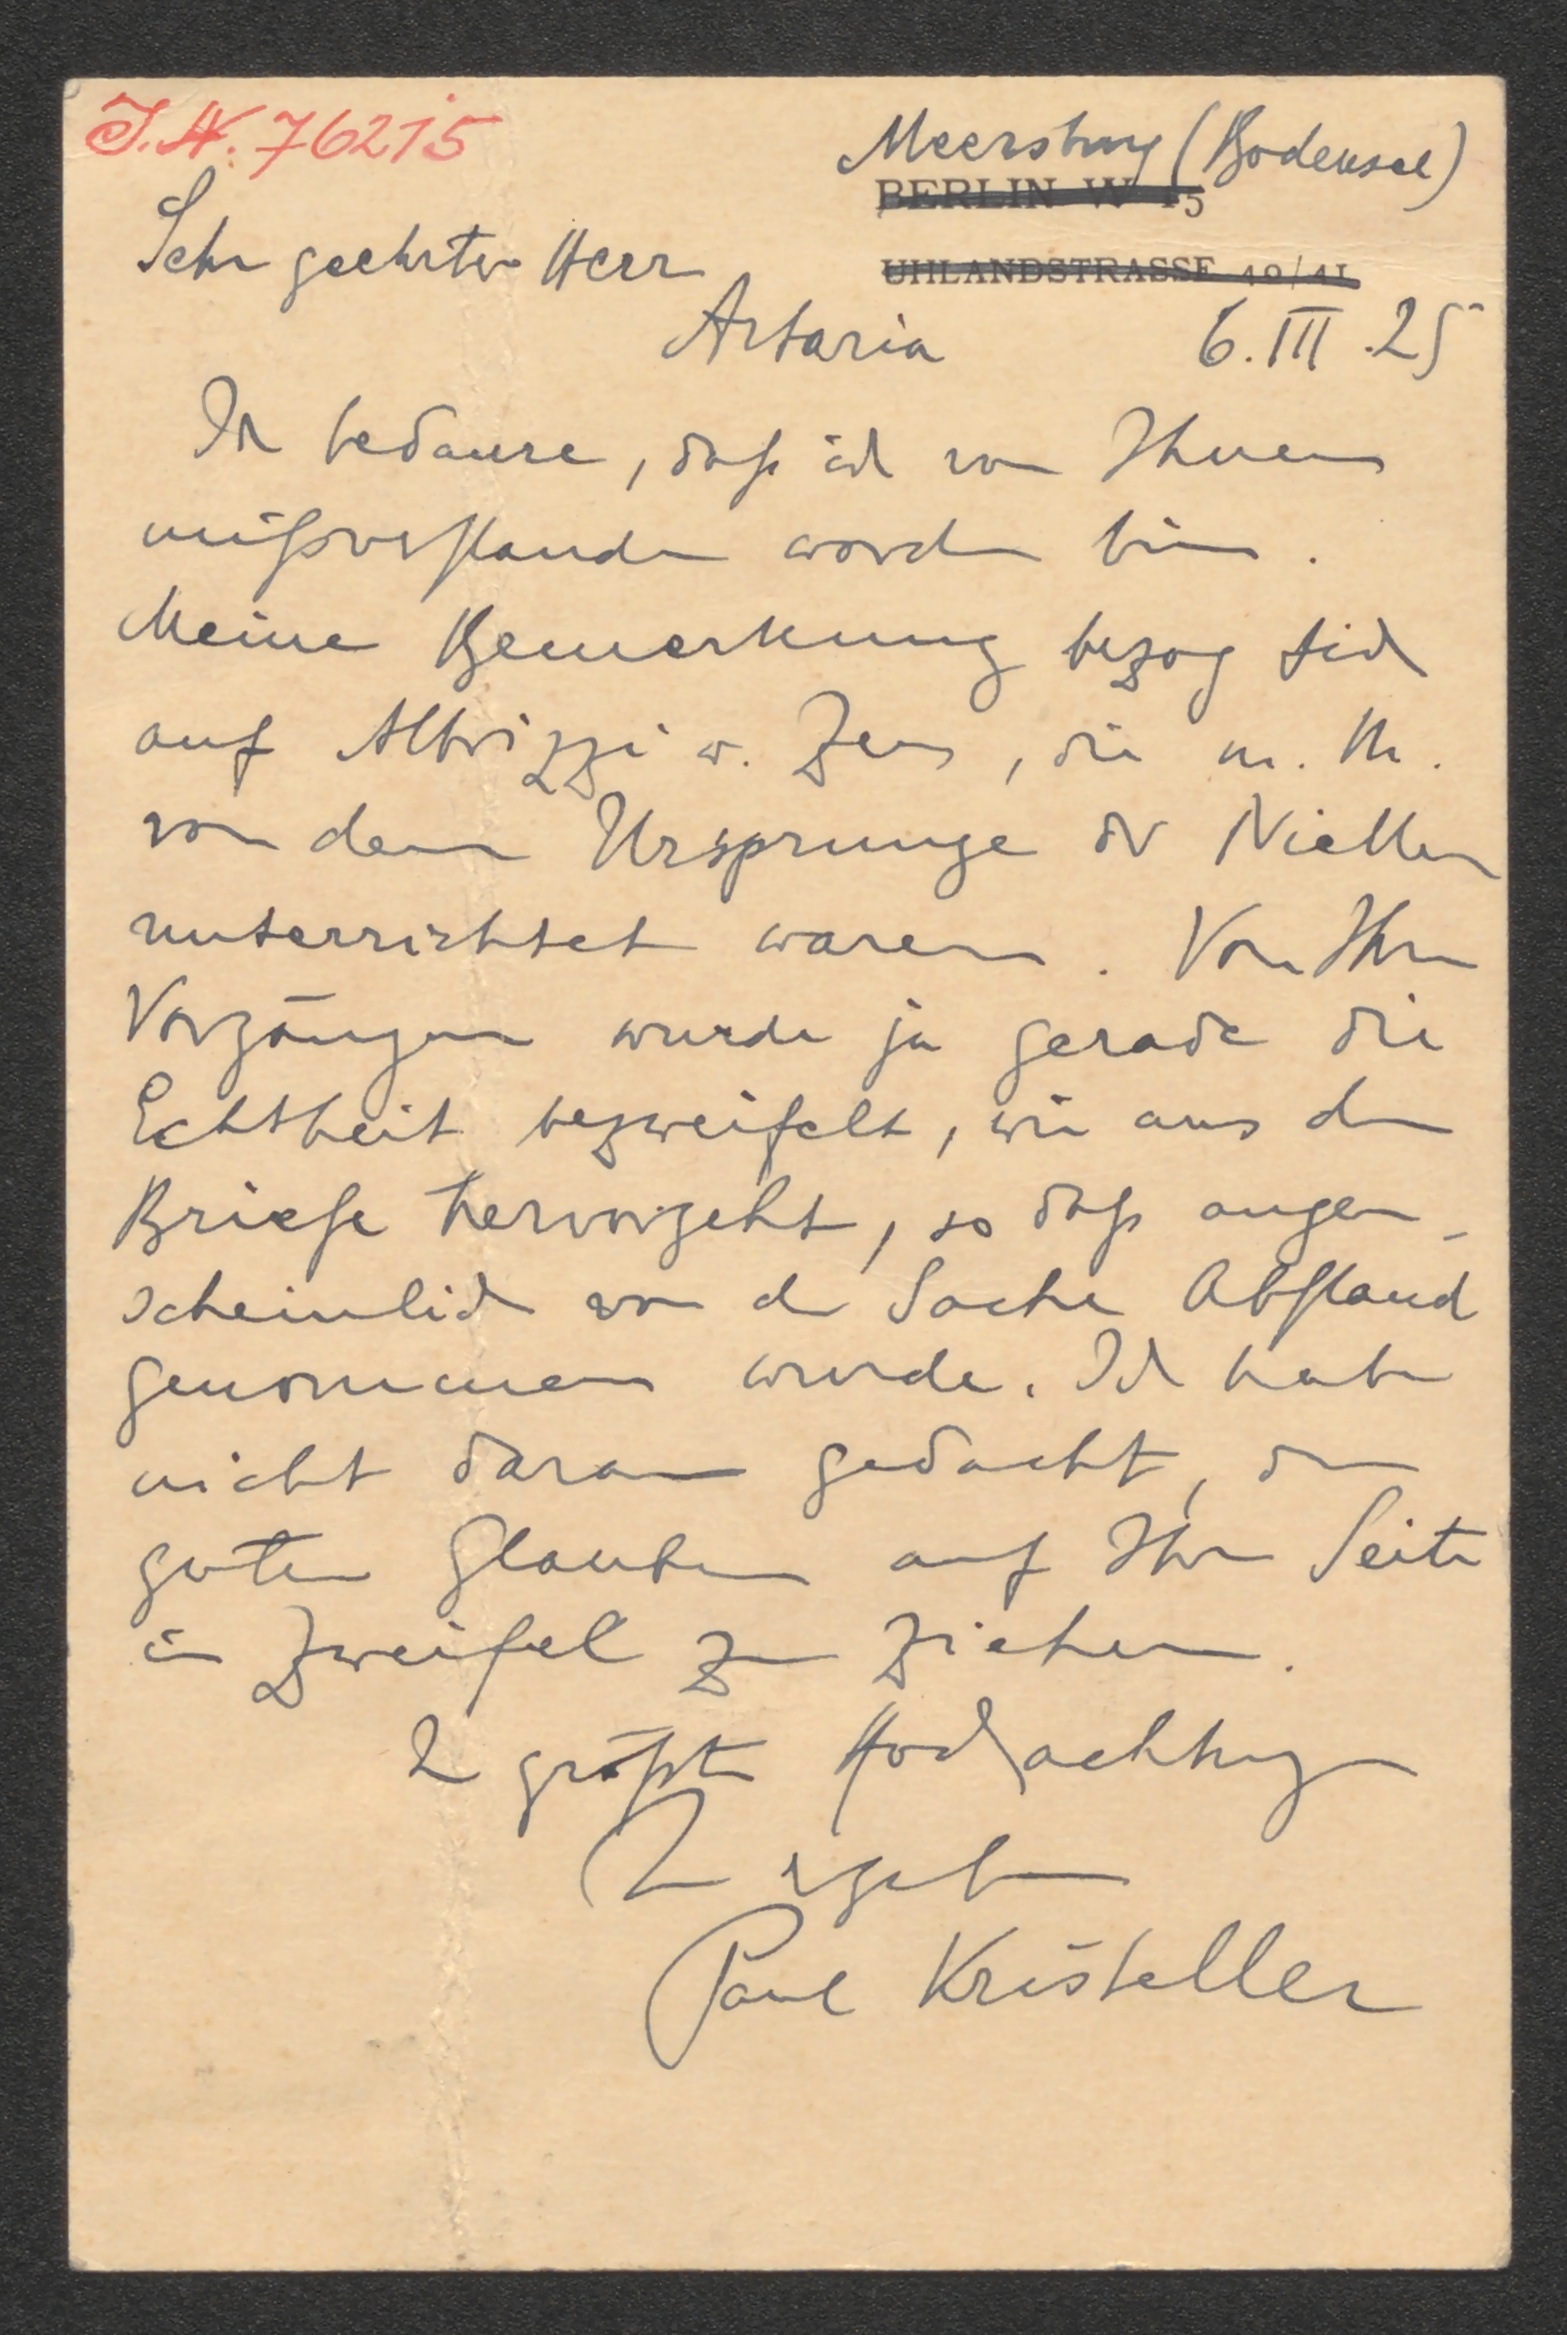 J.N. 76215
Meersburg (Bodensee)
BERLIN W 15
UHLANDSTRASSE
Sehr geehrter Herr
Artaria
6. III. 25
Ich bedaure, daß ich von Ihnen
mißverstanden worden bin.
Meine Bemerkung bezog sich
auf Albrizzi u. Zen, die m. M.
von dem Ursprunge der Niellen
unterrichtet waren. Von Ihren
Vorgängern wurde ja gerade die
Echtheit bezweifelt, wie aus dem
Briefe hervorgeht, so daß augen-
scheinlich von der Sache Abstand
genommen wurde. Ich habe
nicht daran gedacht, den
guten Glauben auf Ihrer Seite
in Zweifel zu ziehen.
In größter Hochachtung
Ihr ergebener
Paul Kristeller